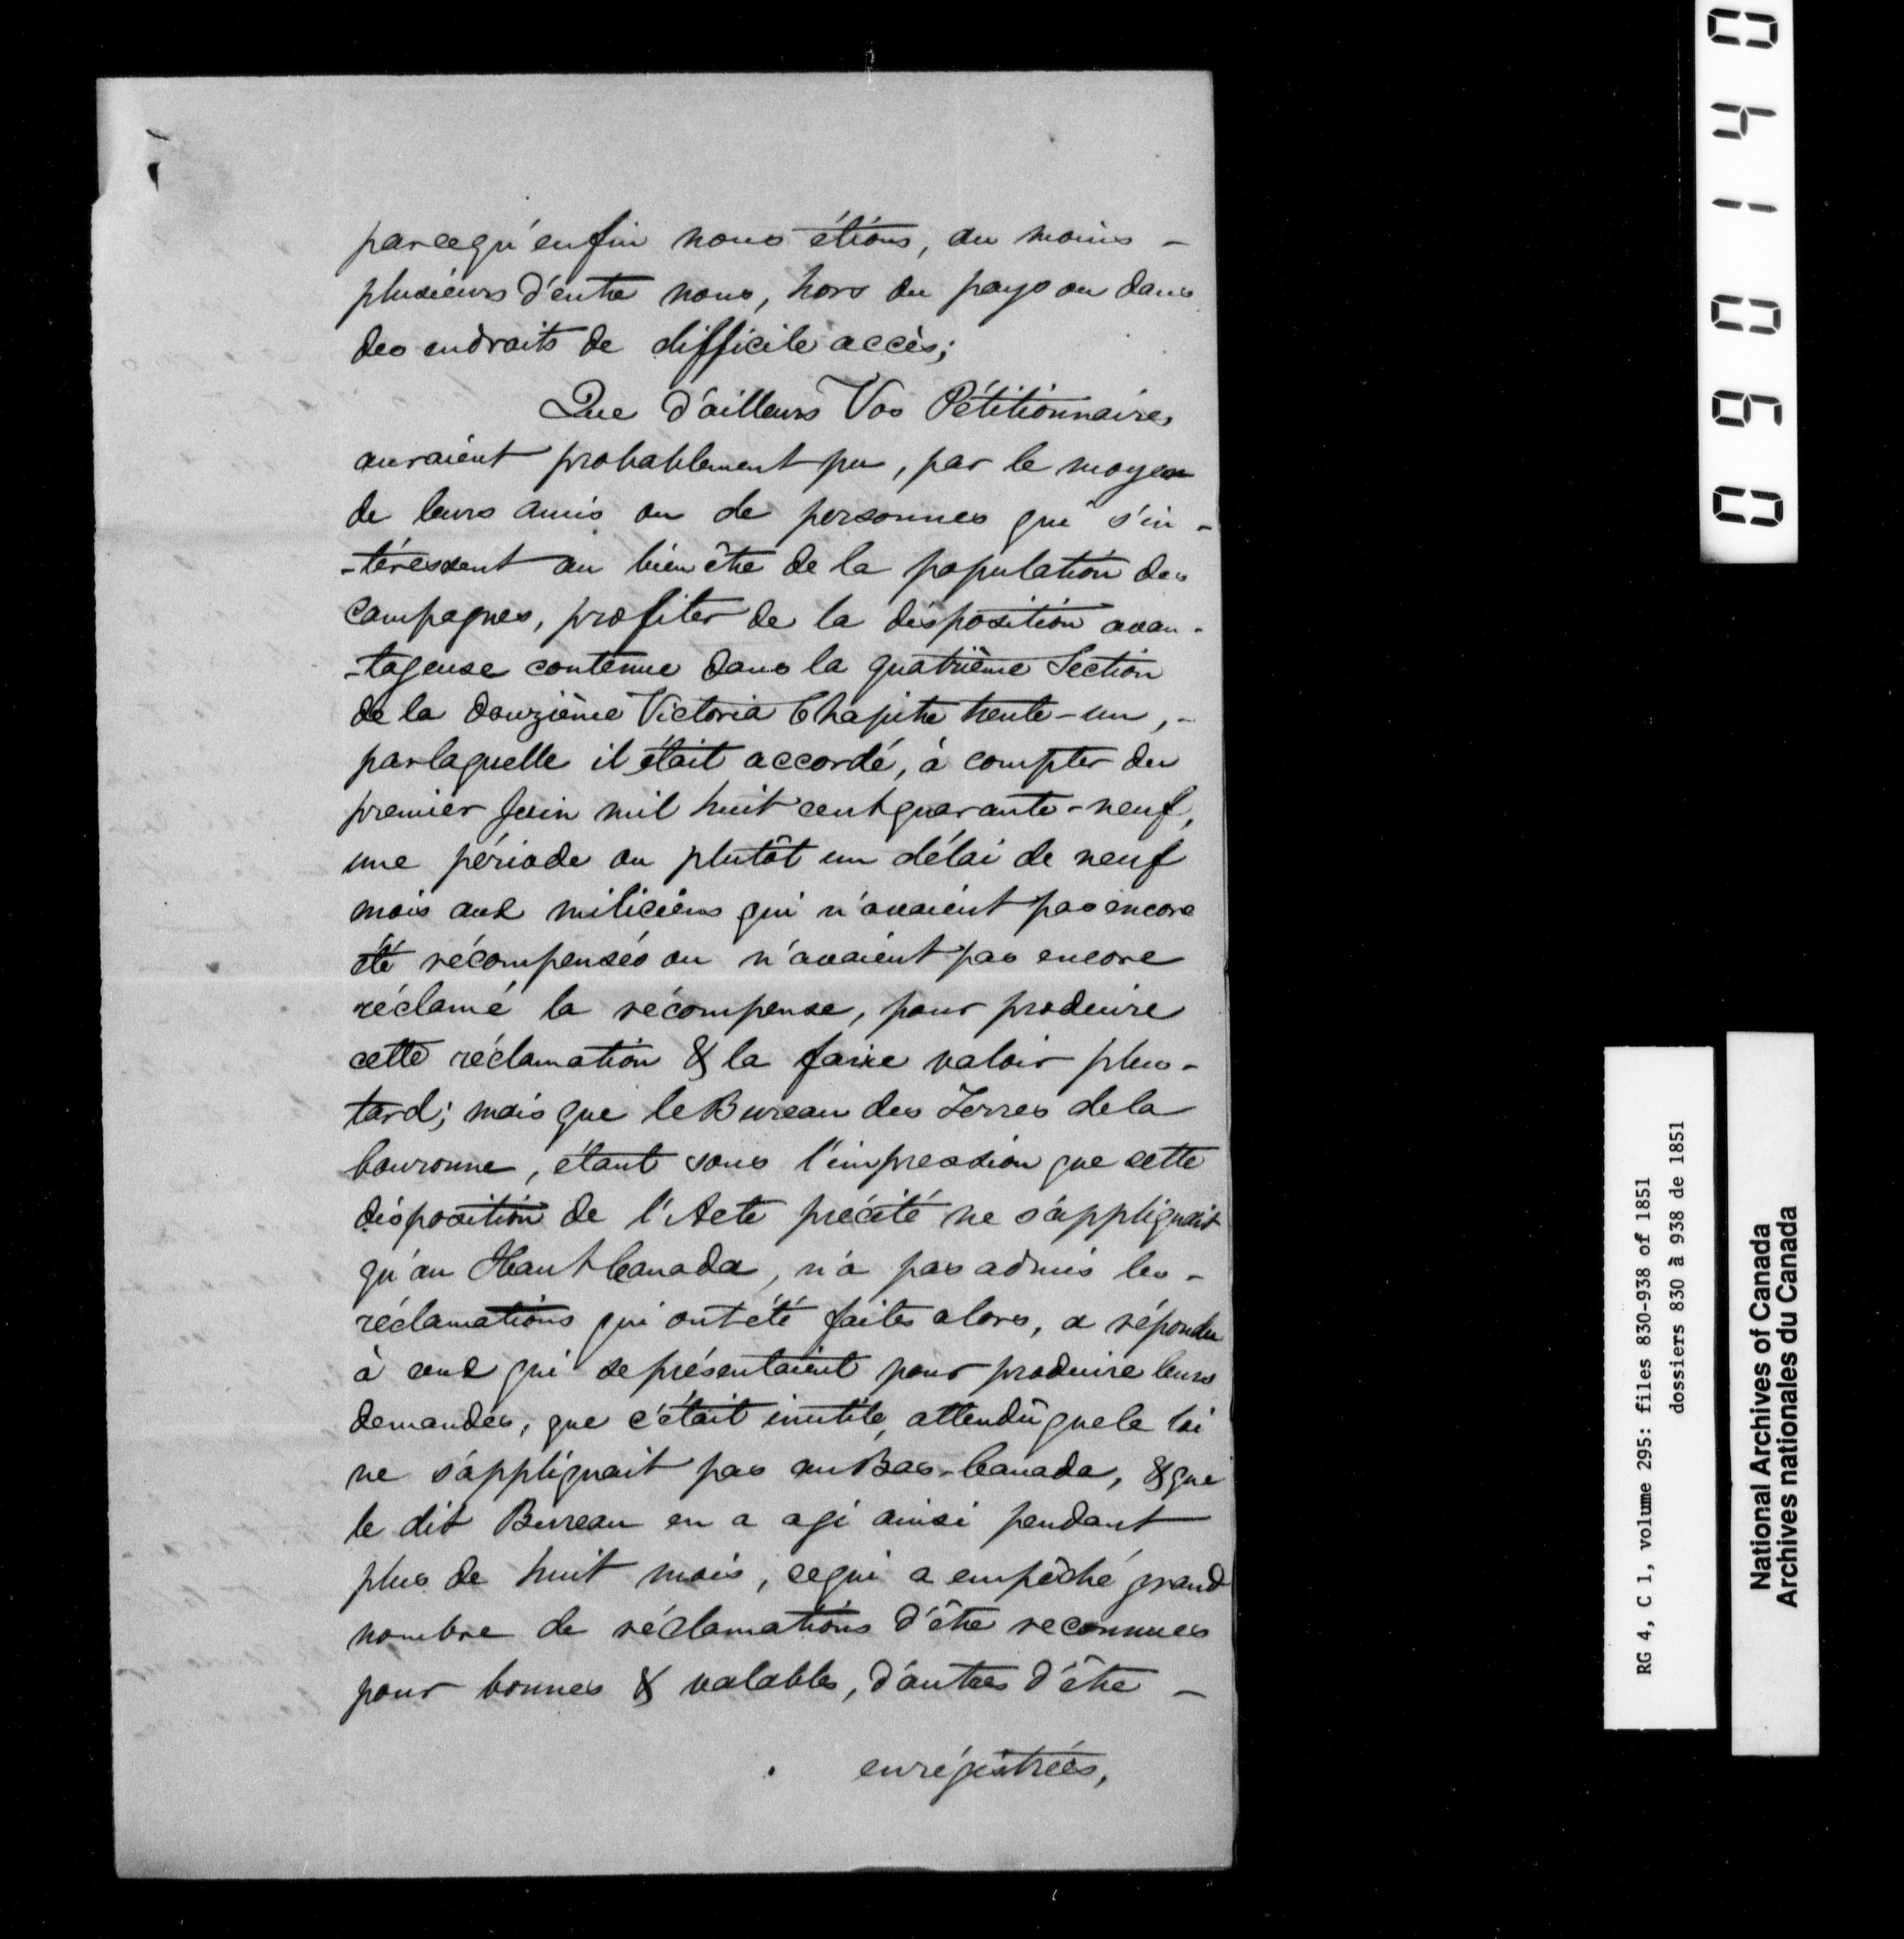 parcequ'enfin nous étions, au moins -
plusieurs d'entre nous, hors du pays ou dans
des endroits de difficile accès;
Que d'ailleurs Vos Pétitionnaires
auraient probablement pu, par le moyen
de leurs amis ou de personnes qui s'in-
-téressent au bien être de la population des
Campagnes, profiter de la disposition avan-
-tageuse contenue dans la quatrième Section
de la douzième Victoria Chapitre trente-un, -
par laquelle il était accordé, à compter du
premier Juin mil huit cent quarante-neuf,
une période ou plutôt un délai de neuf
mois aux miliciens qui n'avaient pas encore
été récompensés ou n'avaient pas encore
réclamé la récompense, pour produire
cette réclamation & la faire valoir plus-
tard; mais que le Bureau des Terres de la
Couronne, étant sous l'impression que cette
disposition de l'Acte précité ne s'appliquait
qu'au Haut Canada, n'a pas admis les -
réclamations qui ont été faites alors, a répondu
à ceux qui se présentaient pour produire leurs
demandes, que c'était inutile, attendû que la loi
ne s'appliquait pas au Bas-Canada, & que
le dit Bureau en a agi ainsi pendant
plus de huit mois, ce qui a empêché grand
nombre de réclamations d'être reconnues
pour bonnes & valables, d'autres d'être -
enrégistrées,
090140
RG 4, C 1, volume 295: files 830-938 of 1851
dossiers 830 à 938 de 1851
National Archives of Canada
Archives nationales du Canada